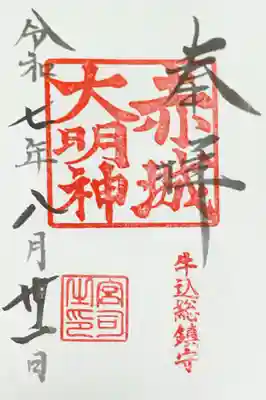 奉拝
赤城
大明神
牛込総鎮守
令和七年八月卅一日
宮司
之印